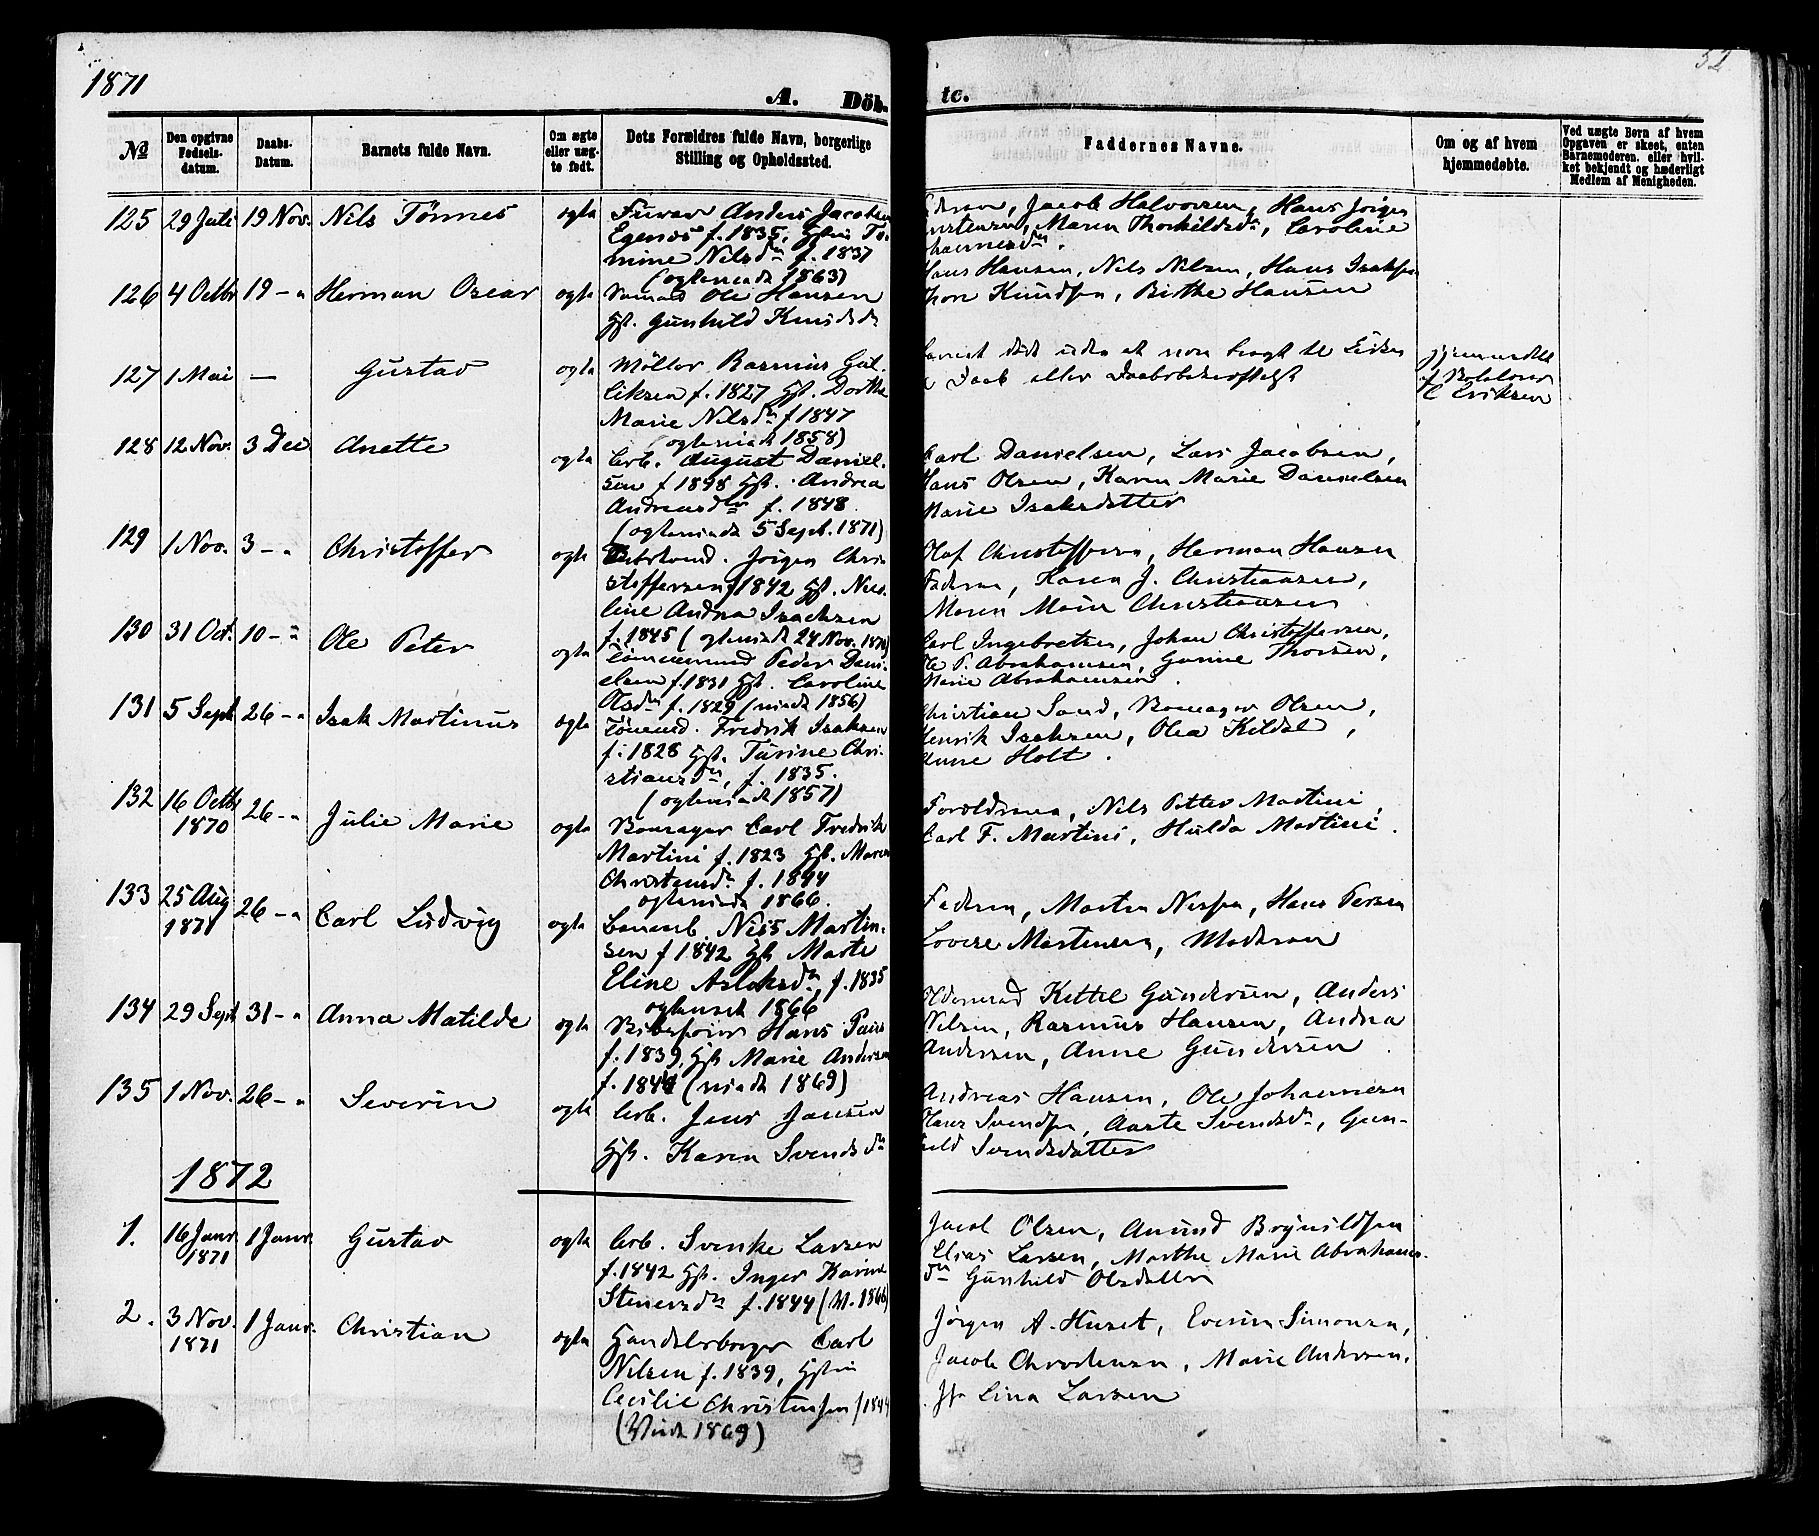 1871
A. Döb
te.
52
№
Den opgivne Fødsels-datum.
Daabs-Datum.
Barnets fulde Navn.
Om ægte eller uæg-te født.
Dets Forældres fulde Navn, borgerlige Stilling og Opholdssted.
Faddernes Navne.
Om og af hvem hjemmedøbte.
Ved uægte Børn af hvem Opgaven er skeet, enten Barnemoderen, eller hvil-ket bekjendt og hæderligt Medlem af Menigheden.
125 29 Juli 19 Nov. Nils Tönnes ogta
Anders Jacobsen
Egenes f. 1835,
mine Nilsdr f. 1837
(1863)
Jacob Halvorsen, Hans Jörgen
Maren Thorkildsdr, Caroline
126 4 Octbr 19 - " Herman Oscar ogta
Ole Hansen
Hst. Gunhild Knudsdr
Hans Hansen, Nils Nilsen, Hans Isaksen
Knudsen, Birthe Hansen
127 1 Mai — Gustav ogta
Möller Rasmus Gul-
liksen f. 1827 Hst. Dorthe
Marie Nilsdr f 1847
(1858)
Daab eller
Eriksen
128 12 Nov. 3 Dec Anette ogta
Arb. August Daniel-
sen f 1848 Hst. Andrea
Andreasdr f. 1848.
(5 Sept. 1871)
Carl Danielsen, Lars Jacobsen,
Hans Olsen, Karen Marie Danielsen
Marie Isaksdatter
129 1 Nov. 3 - " Christoffer ogta
Jörgen Chri-
stoffersen f 1842 Hst. Nico-
line Andrea Isachsen
f. 1845 (24 Nov. 1870)
Olaf Christoffersen, Herman Hansen
Faderen, Karen J. Christiansen,
Maren Marie Christiansen
130 31 Oct. 10 - " Ole Peter ogta
Tömmermand Peder Dani-
elsen f. 1831 Hst. Caroline
Olsdr f. 1829 (1856)
Carl Ingebretsen, Johan Christoffersen,
Ole P. Abrahamsen, Gunne Thorsen,
Marie Abrahamsen.
131 5 Sept 26 - " Isak Martinus ogta
Fredrik Isaksen
f. 1828 Hst. Turine Chri-
stiansdr, f. 1835.
(1857)
Christian Sand, Olsen,
Henrik Isaksen, Olea Kildal,
Anne Holt.
132 16 Octbr 1870 26 - " Julie Marie ogta
Carl Fredrik
Martini f. 1823 Hst. Maren
Christensdr f. 1844
1866.
Forældrene, Nils Petter Martini,
Carl F. Martini, Hulda Martini.
133 25 Aug 1871 26 - " Carl Ludvig ogta
Niss Martin-
sen f 1842 Hst Marte
Eline Aslaksdr, f. 1835
1866
Faderen, Morten Nissen, Hans
Lovise Mortensen, Moderen
134 29 Sept 31 - " Anna Matilde ogta
Hans
f. 1839, Hst Marie Andersen
f. 1841 (1869)
Kittel Gundersen, Anders
Nilsen, Rasmus Hansen, Andrea
Andersen, Anne Gundersen
135 1 Nov. 26 - " Severin ogta
Arb. Jens Jansen
Hst. Karen Svendsdr
Andreas Hansen, Ole Johannesen
Hans Svendsen, Aaste Svendsdr, Gun-
hild Svendsdatter
1872
1. 16 Janr 1871 1 Janr. Gustav ogta
Arb. Svenke Larsen
f. 1842 Hst. Inger Karine
Stenersdr f. 1844
Jacob Olsen, Amund Brynildsen
Elias Larsen, Marthe Marie Abrahams-
dr Gunhild Olsdatter
2. 3 Nov. 1871 1 Janr. Christian ogta
Handelsborger Carl
Nilsen f. 1839,
Cecilie Christensen f 1844
(1869)
Jörgen A. Huset, Simonsen,
Jacob Christensen, Marie Andersen,
Lina Larsen